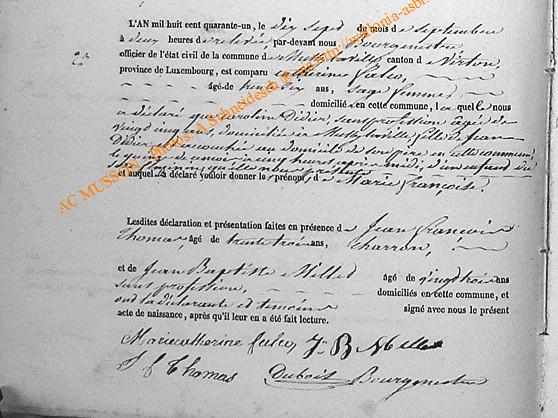 L'AN mil huit cent quarante-un, le dix sept du mois de septembre
à deux heures de relevée, par-devant nous Bourgmestre
officier de l'état civil de la commune de canton de Virton,
province de Luxembourg, est comparu catherine
âgé-de trente six ans, Sage femme
domiciliée en cette commune, la quelle nous
a déclaré que Didier, sans profession âgée de
vingt cinq ans, domiciliée à fille de Jean
Didier, est accouchée au domicile de son père en cette commune
le quinze de ce mois, à cinq heures après midi, d'un enfant du
sexe féminin nous présente
et auquel la déclaré vouloir donner le prénom, de Marie Françoise.
Lesdites déclaration et présentation faites en présence de Jean François
Thomas, âgé de trente trois ans, charron,
et de Jean Baptiste Millet âgé de vingt trois ans
sans profession, domiciliés en cette commune, et
ont la déclarante et témoins signé avec nous le présent
acte de naissance, après qu'il leur en a été fait lecture.
Marie catherine J B Millet
J f Thomas Dubois Bourgmestre
AC MUSSON, Photos: A Schneidesch